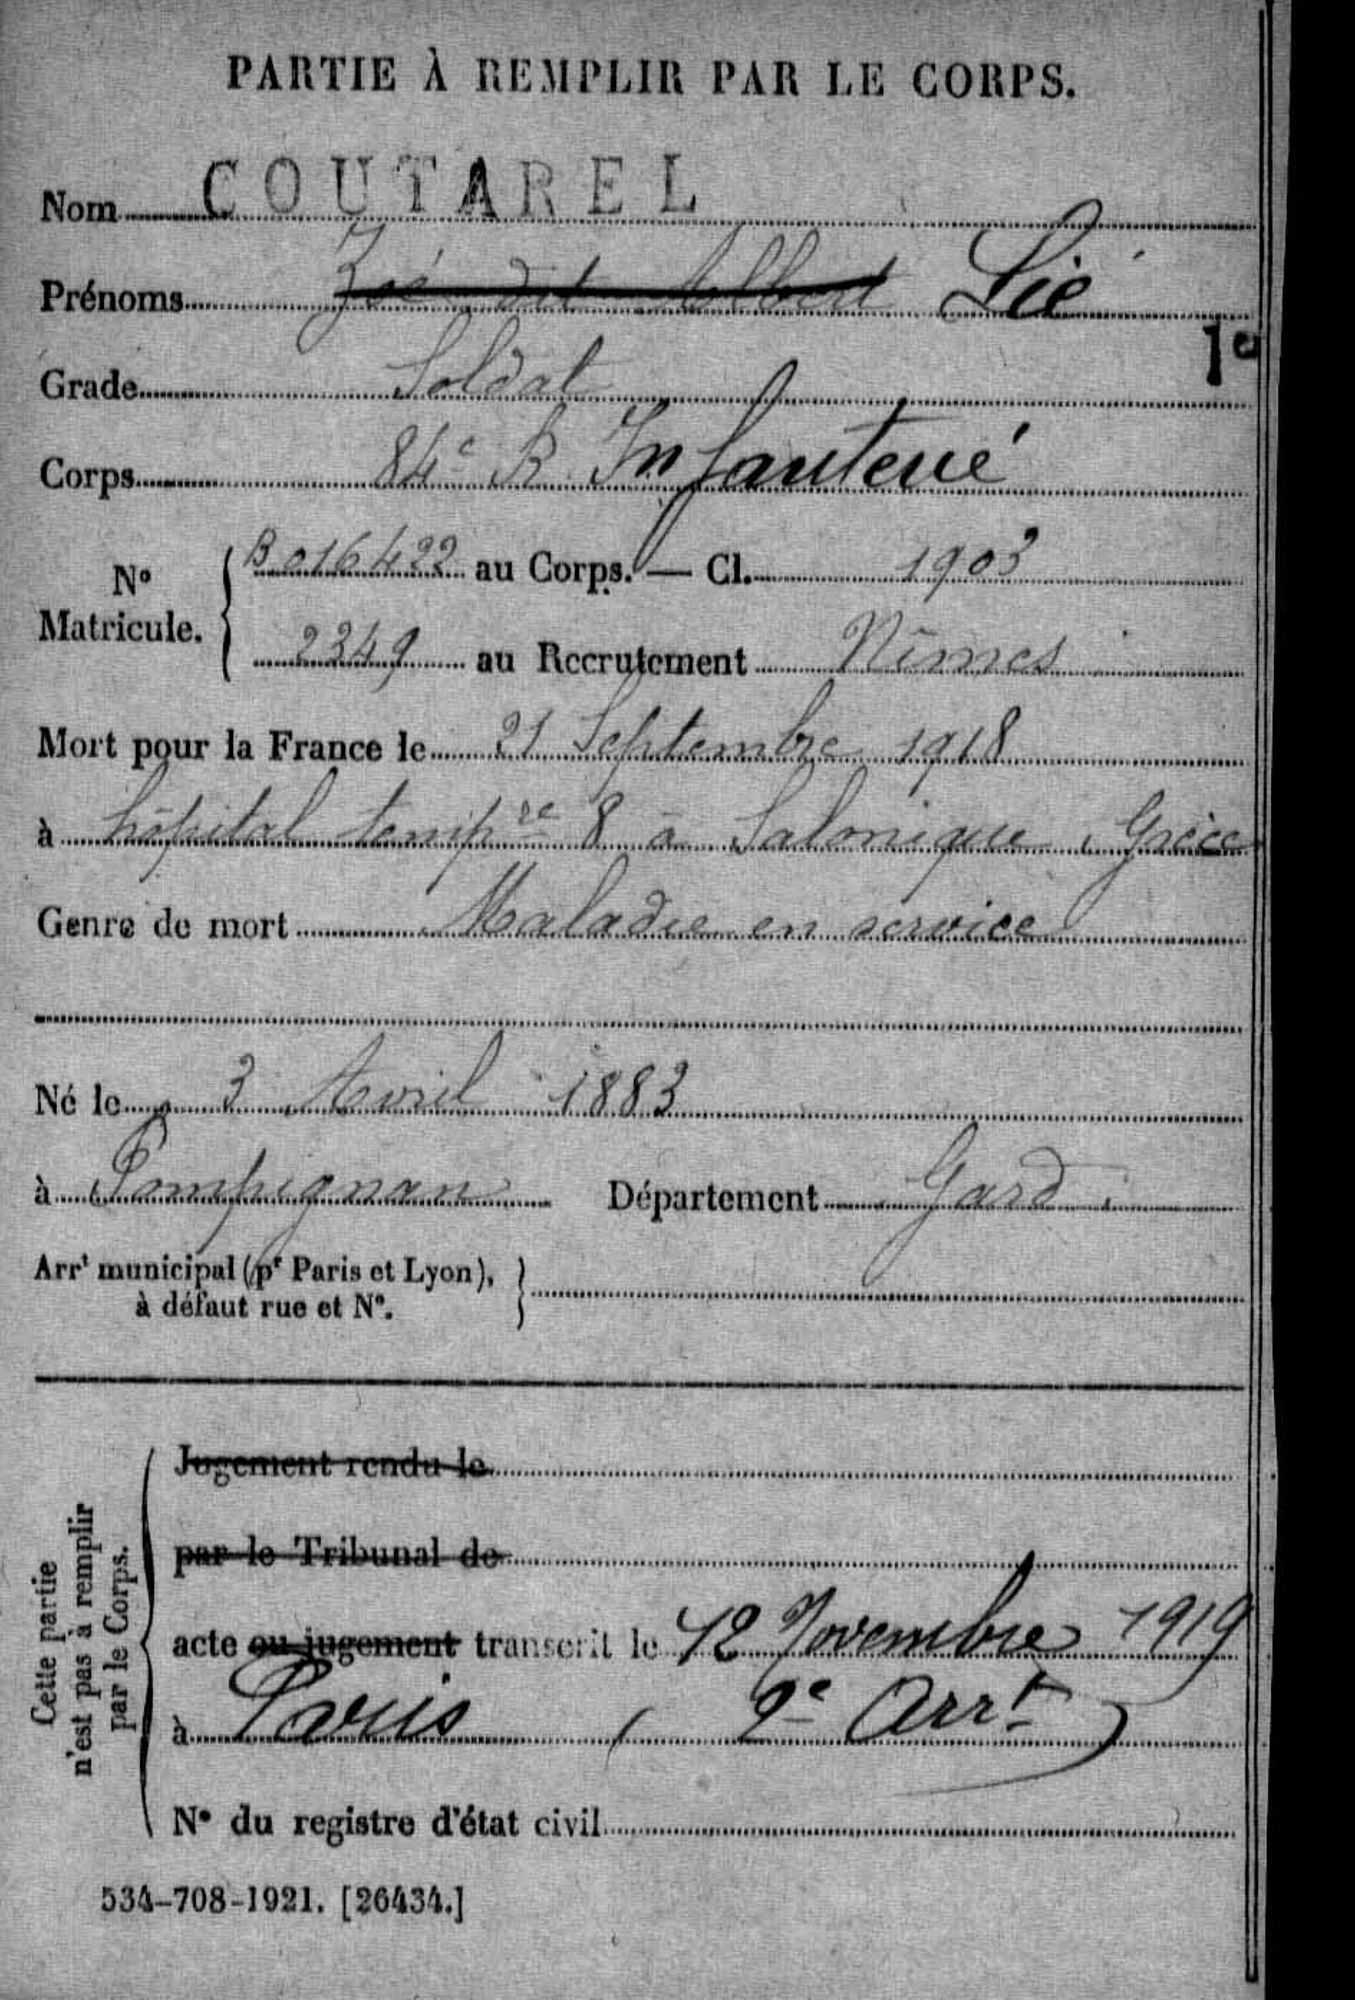 PARTIE À REMPLIR PAR LE CORPS.
Nom COUTAREL
Prénoms dit Albert Lié
1e
Grade Soldat
Corps 84e R Infanterie
N° Matricule. B016422 au Corps. — Cl. 1903
2349 au Recrutement Nîmes
Mort pour la France le 21 Septembre 1918
à hôpital tempre 8 à Salonique Grèce
Genre de mort Maladie en service
Né le 3 Avril 1883
à Pompignan Département Gard
Arrt municipal (pr Paris et Lyon),
à défaut rue et N°.
Cette partie
n'est pas à remplir
par le Corps.
Jugement rendu le
par le Tribunal de
acte ou jugement transcrit le 12 Novembre 1919
à Paris (9e Arrt)
N° du registre d'état civil
534-708-1921. [26434.]